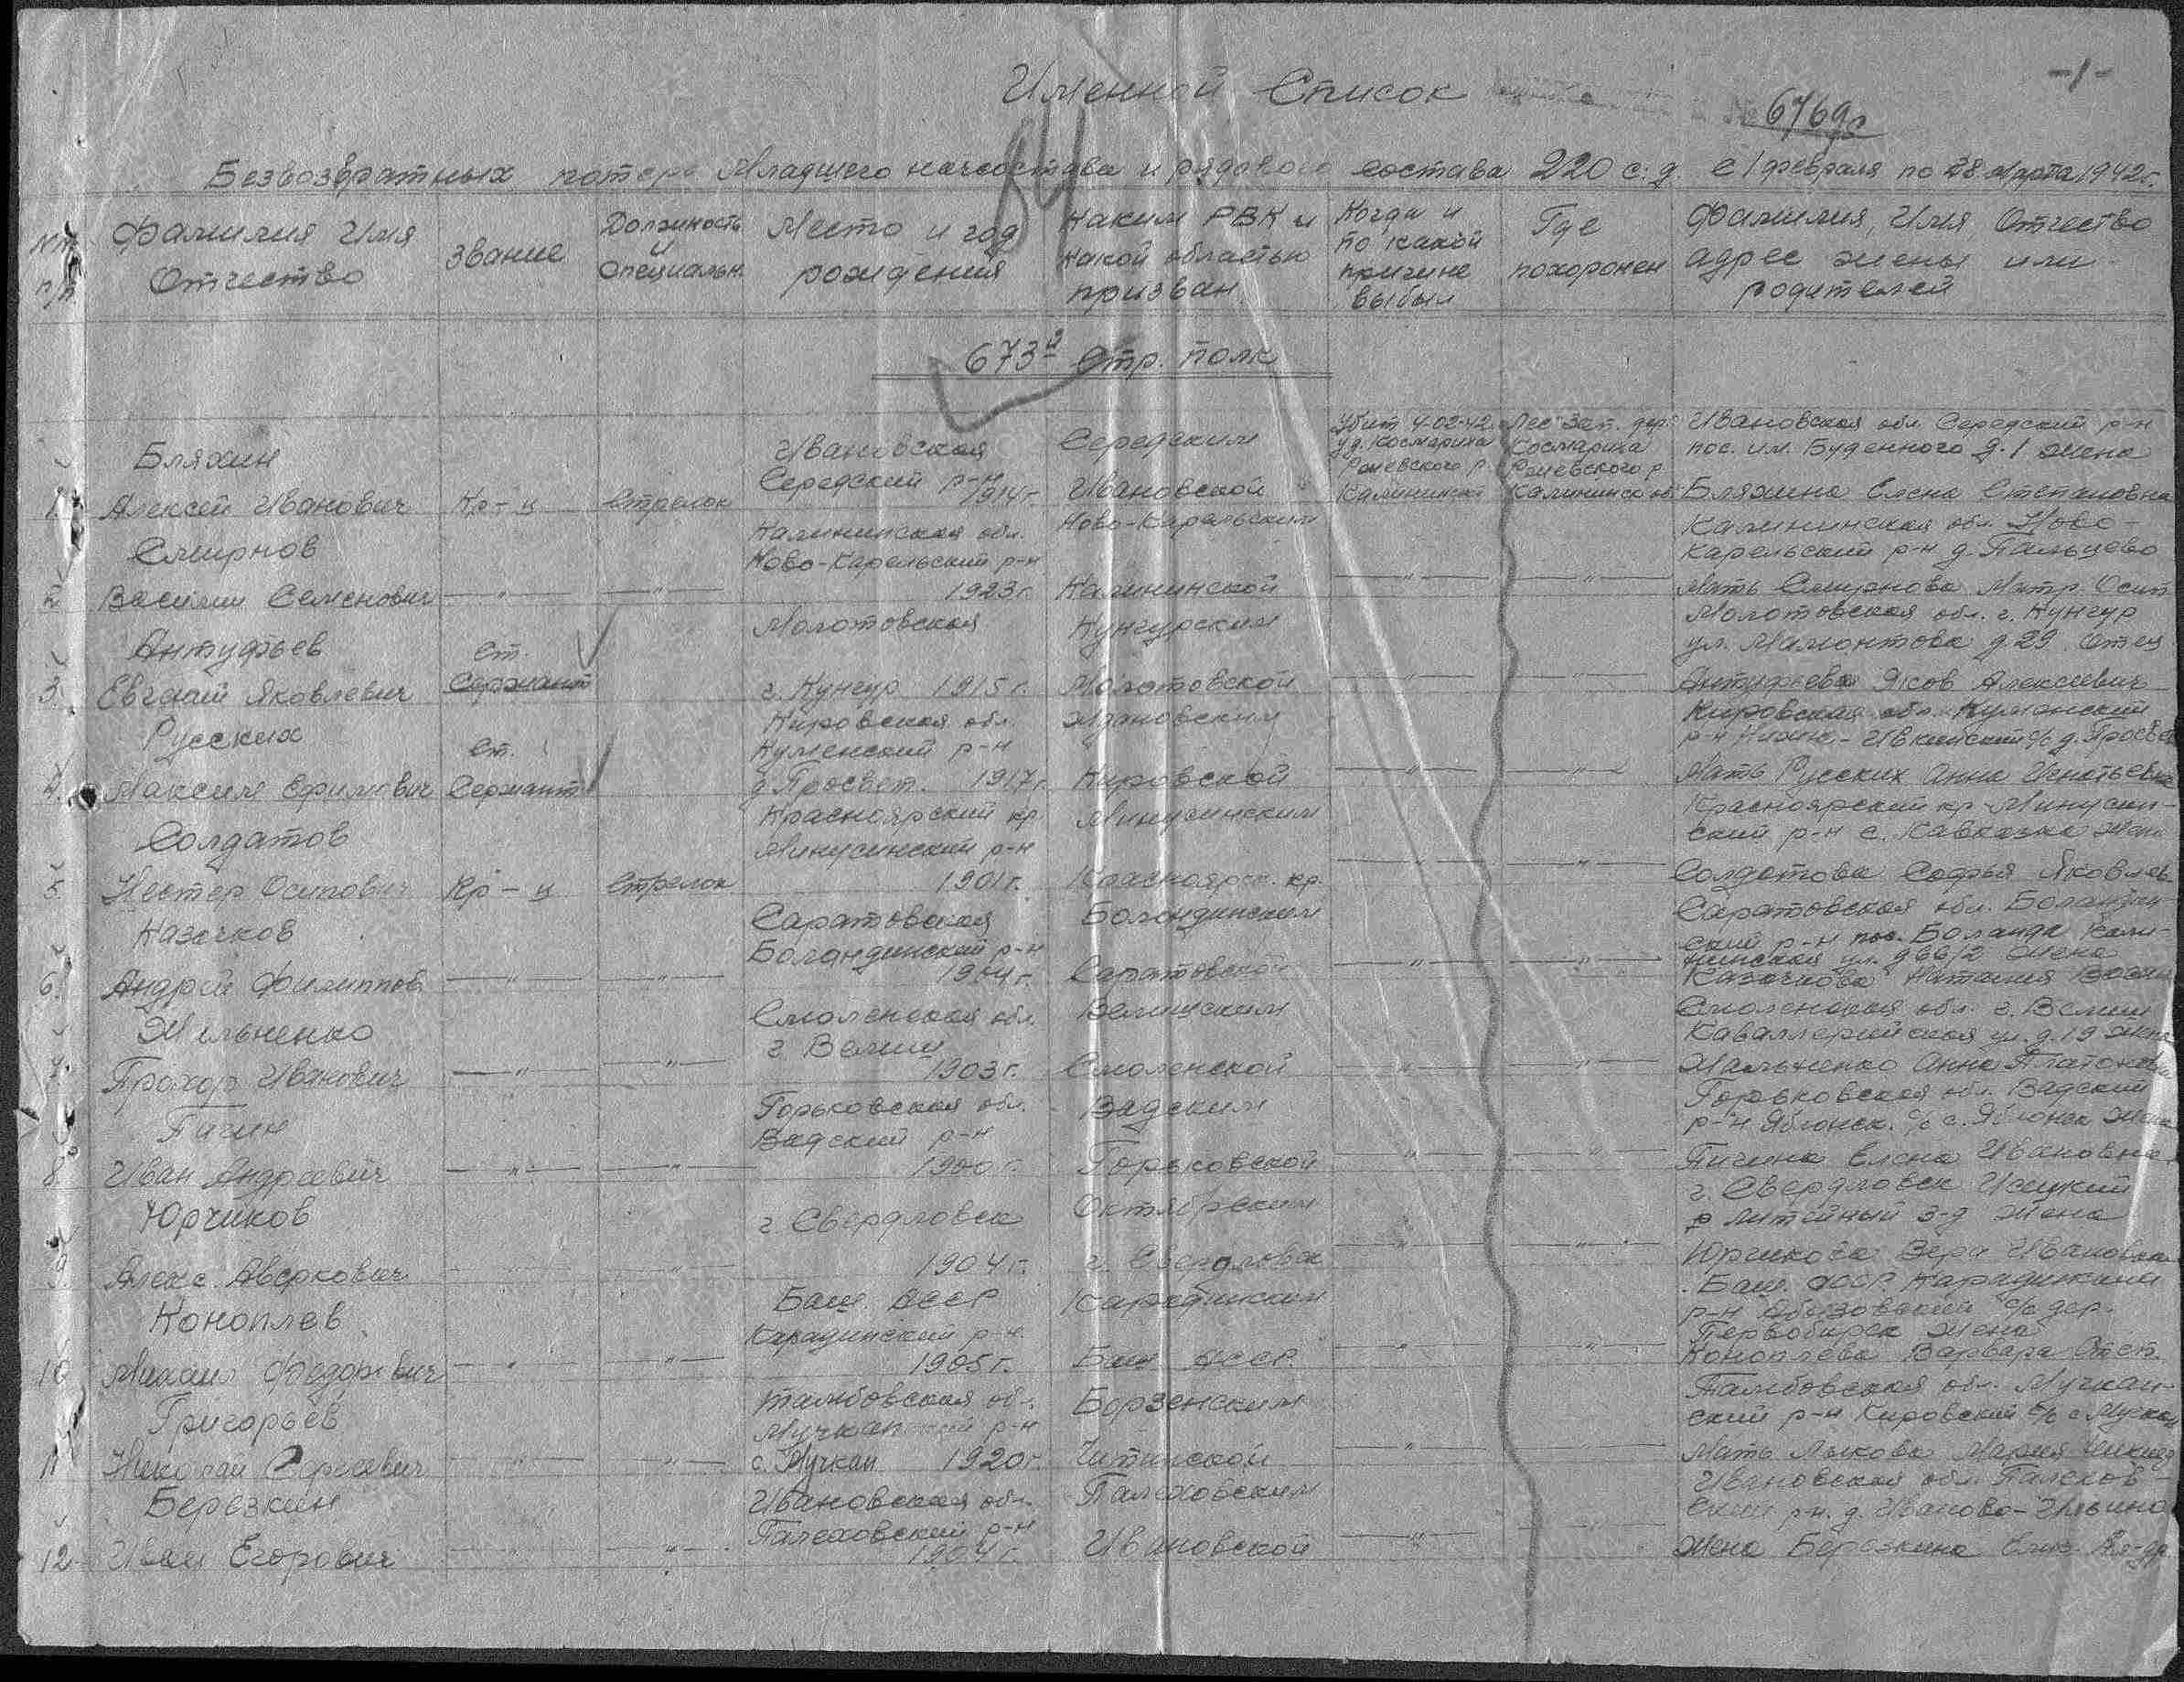 -1-
Именной Список
№ 6769с
84
Безвозвратных потерь Младшего начсостава и рядового состава 220 с.д. с 1 февраля по 28 марта 1942 г.
№№ п/п
Фамилия Имя Отчество
звание
Должность и специальн.
Место и год рождения
Каким РВК и какой областью призван
Когда и по какой причине выбыл
Где похоронен
Фамилия, Имя, Отчество адрес жены или родителей
673й Стр. полк
1. Бляхин Алексей Иванович
Кр-ц
Стрелок
Ивановская Середский р-н 1914 г.
Середским Ивановской
Убит 4-02-42 у д. Космариха Ржевского р. Калининск
Лес Зап. дер. Космариха Ржевского р. Калининск об
Ивановская обл Середский р-н
пос. им. Буденного д. 1 жена
Бляхина Елена Степановна
2 Смирнов Василий Семенович
— " —
— " —
Калининская обл. Ново-Карельский р-н 1923 г.
Ново-Карельским Калининской
— " —
— " —
Калининская обл. Ново-
карельский р-н д. Пальцево
Мать Смирнова Матр. Осип
3. Антуфьев Евгений Яковлевич
Ст. Сержант
Молотовская г. Кунгур 1915 г.
Кунгурским Молотовской
— " —
— " —
Молотовская обл. г. Кунгур
ул. Мамонтова д. 29. Отец
Антуфьев Яков Алексеевич
4. Русских Максим Ефимович
Ст. Сержант
Кировская обл. Куменский р-н д. Просвет. 1917 г.
Ждановским Кировской
— " —
— " —
Кировская обл. Куменский
р-н Нижне-Ивкинский с/с д. Просвет
Мать Русских Анна Игнатьевна
5. Солдатов Нестер Осипович
Кр-ц
Стрелок
Красноярский кр Минусинский р-н 1901 г.
Минусинским Красноярск. кр.
— " —
— " —
Красноярский кр Минусин-
ский р-н с. Кавказка Жена
Солдатова Софья Яковлев
6. Казачков Андрей Филиппов
— " —
— " —
Саратовская Боландинский р-н 1904 г.
Боландинским Саратовской
— " —
— " —
Саратовская обл. Боландин-
ский р-н пос. Боланда Кали-
нинская ул. д 66/2 жена
Казачкова Наталия Васил
7. Жильненко Прохор Иванович
— " —
— " —
Смоленская обл. г. Велиш 1903 г.
Велишским Смоленской
— " —
— " —
Смоленская обл. г. Велиш
Каваллерийская ул. д. 19 жена
Анна Платоновн
8. Пичин Иван Андреевич
— " —
— " —
Горьковская обл. Вадский р-н 1900 г.
Вадским Горьковской
— " —
— " —
Горьковская обл. Вадский
р-н Яблонск. с/с с. Яблонка жена
Пичина Елена Ивановна
9. Юрчиков Алекс. Аверкович
г. Свердловск 1904 г.
Октябрским г. Свердловск
— " —
— " —
г. Свердловск Исецкий
р Литейный з-д жена
Юрчикова Вера Ивановна
10 Коноплев Михаил Федорович
— " —
— " —
Баш. АССР Караидинский р-н. 1905 г.
Караидинским Баш АССР.
"
"
Баш. АССР. Караидинский
р-н Абызовский с/с дер.
жена
Коноплева Варвара
11 Григорьев Николай Сергеевич
— " —
— " —
Тамбовская об. Мучкапский р-н с. Мучкап 1920 г.
Борзенским Читинской
— " —
Тамбовская обл. Мучкап-
ский р-н Кировский с/с с Мучкап
Мать Лыкова Мария
12. Березкин Иван Егорович
— " —
— " —
Ивановская обл. Палеховский р-н 1904 г.
Палеховским Ивановской
— " —
Ивановская обл. Палехов-
ский р-н. д. Иваново-Ильино
Жена Березкина Елиз. Ал-др